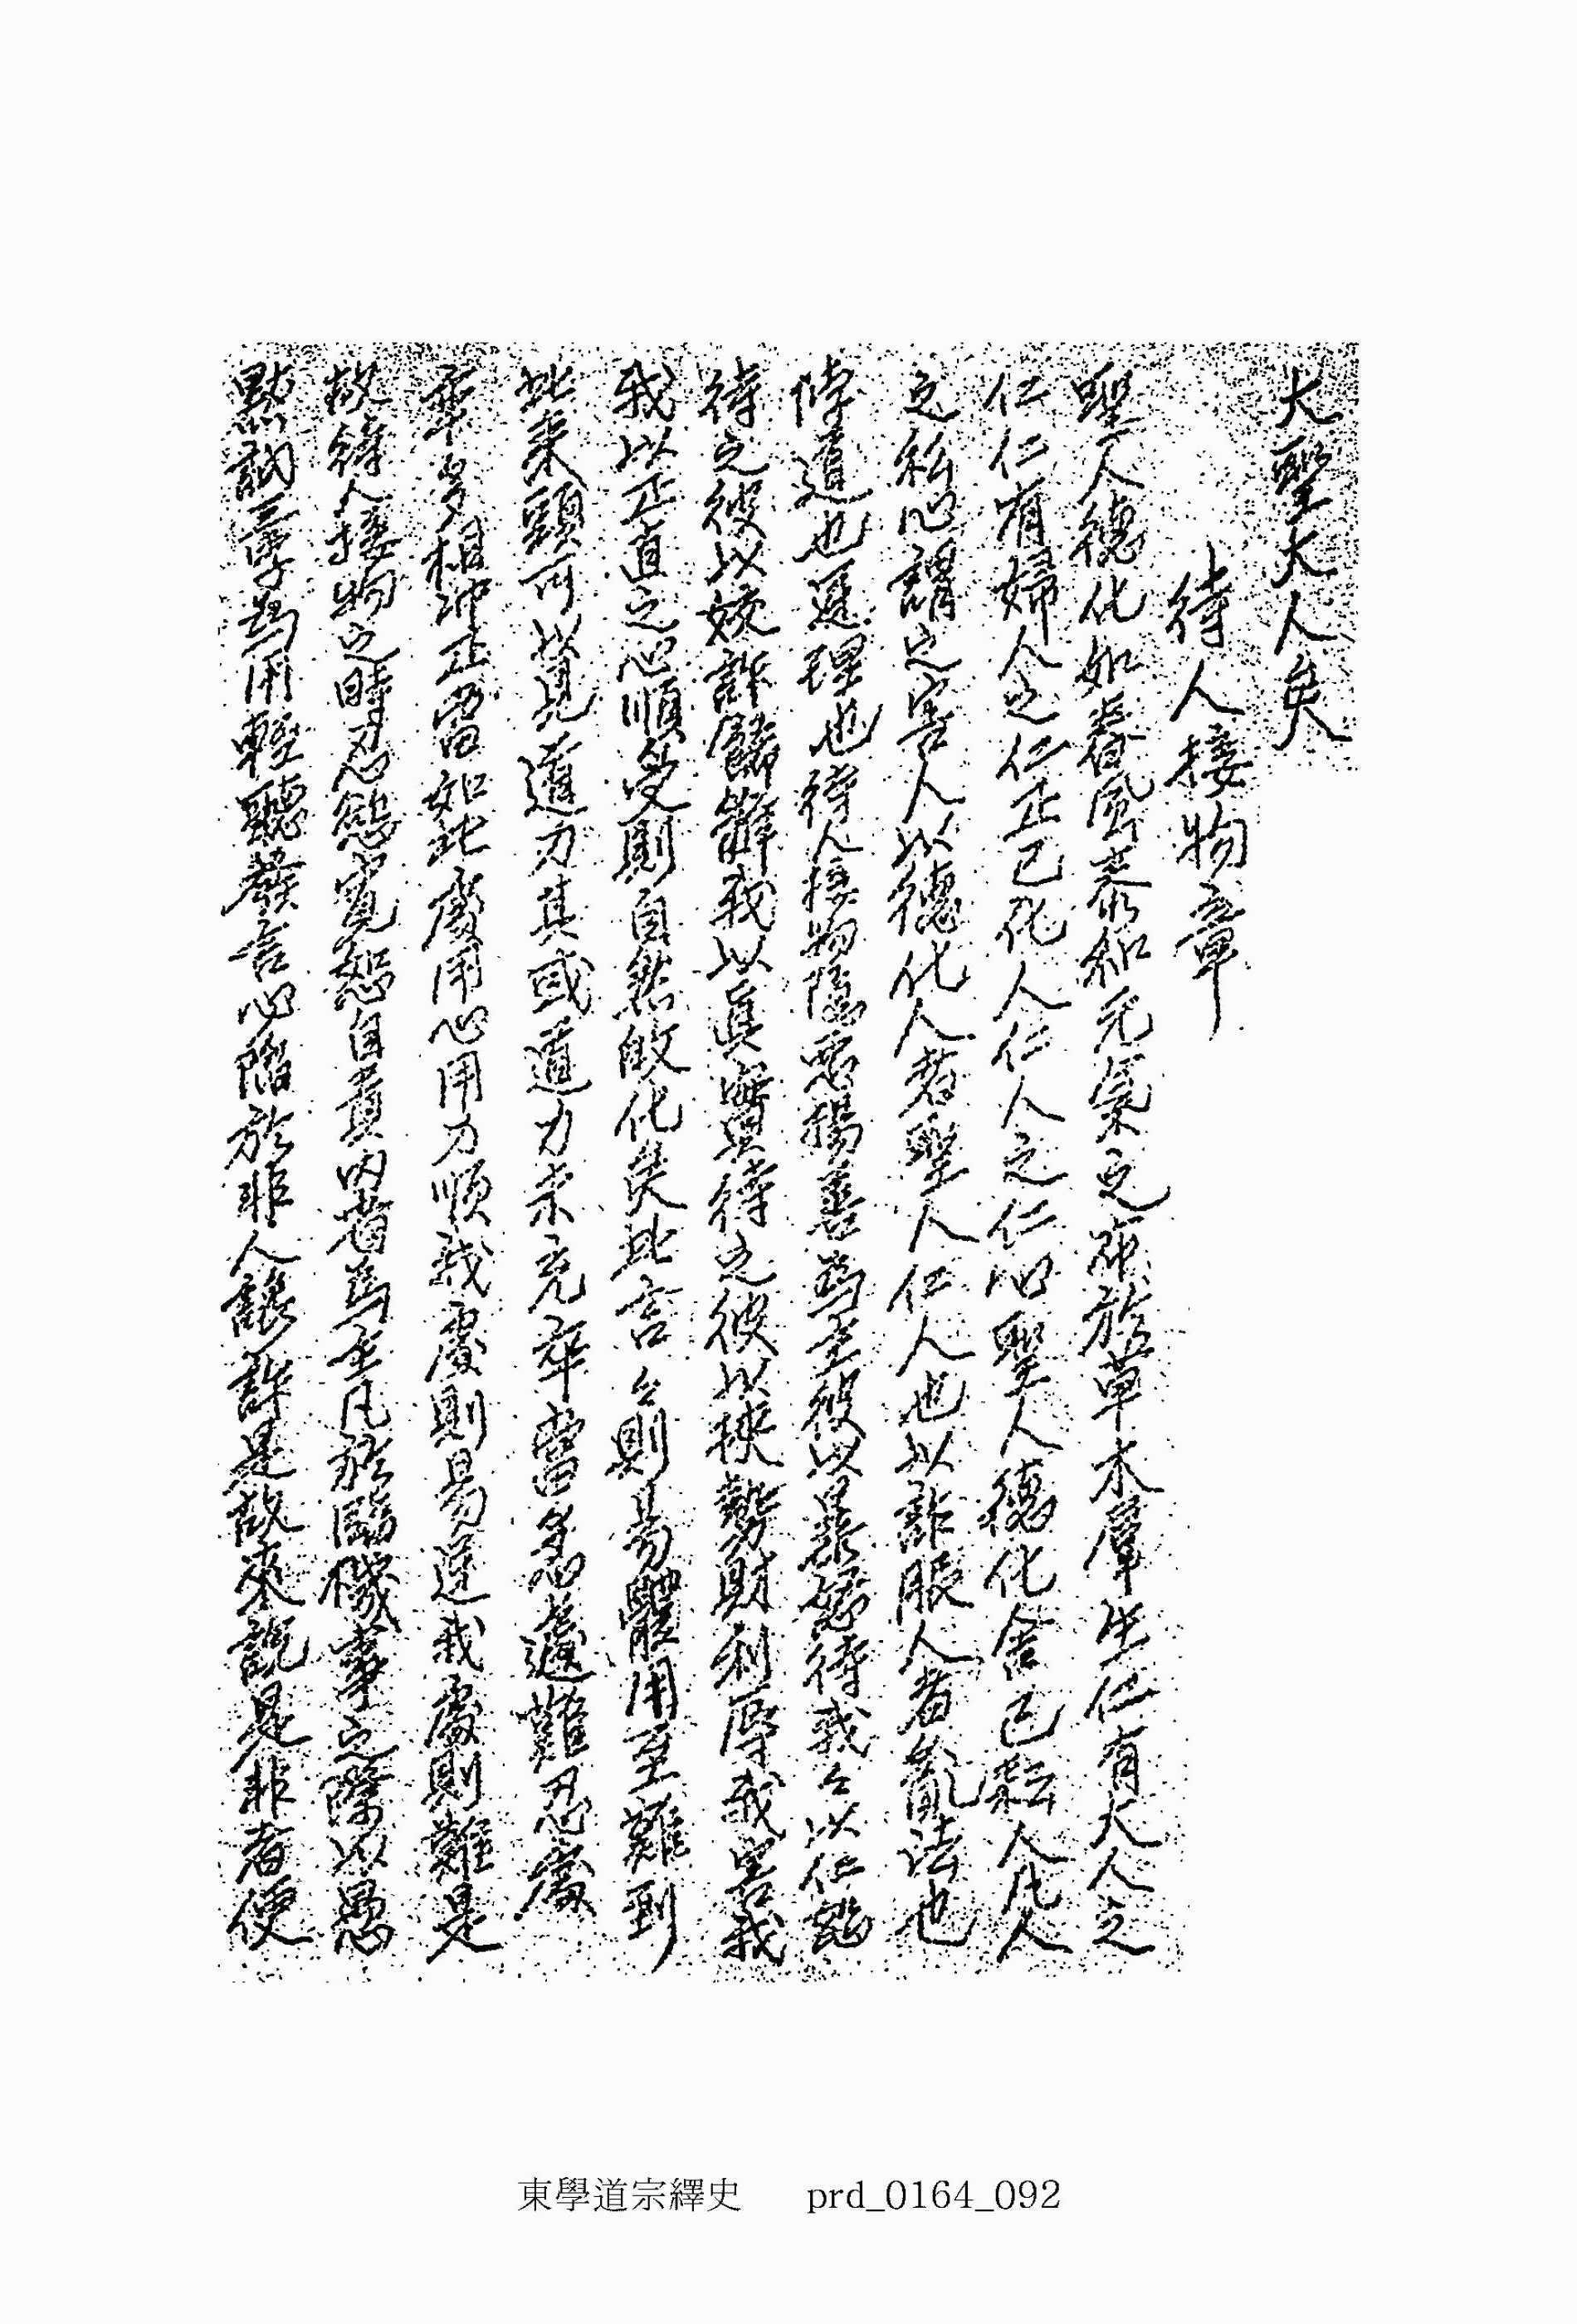 大聖大人矣
待人接物章
聖人德化如春風泰和元氣之布於草木羣生仁有大人之
仁仁有婦人之仁正己化人仁人之仁心聖人德化舍己耘人凡人
之私心謂之害人以德化人者聖人仁人也以詐服人者亂法也
悖道也逆理也待人接物隱惡揚善爲主彼以暴惡待我々以仁恕
待之彼以狡詐餙辭我以眞實待之彼以挾勢財利辱我害我
我以正直之心順受則自然歸化矣此言々則易體用至難到
此来頭可以見道力其或道力未充率當多急遽難忍處
率多相冲正當如此處用心用力順我處則易逆我處則難是
故待人接物之時忍怒寬恕自責內省爲主凡於臨機事之際以愚
黙訥三字爲用輕聽發言必陷於非人讒詐是故來說是非者便